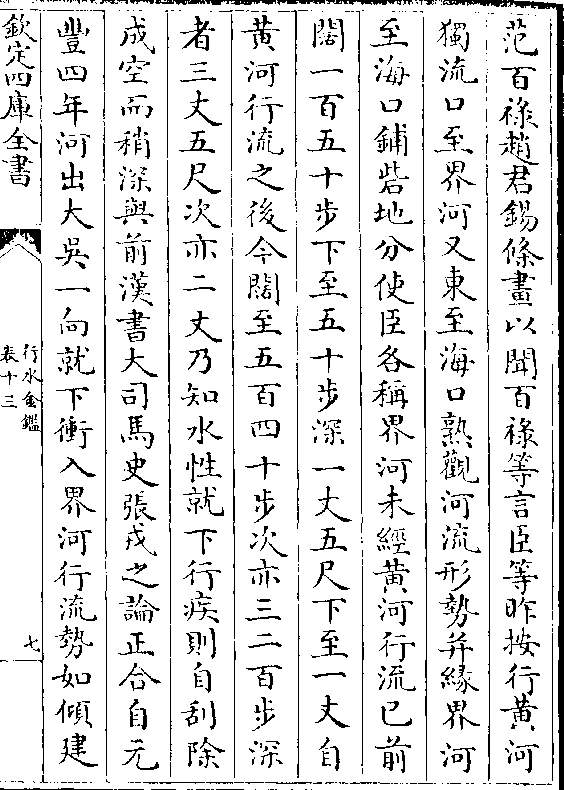 范百祿趙君錫條畫以聞百祿等言臣等昨按行黃河
獨流口至界河又東至海口熟觀河流形勢并緣界河
至海口鋪砦地分使臣各稱界河未經黃河行流已前
闊一百五十步下至五十步深一丈五尺下至一丈自
黃河行流之後今闊至五百四十步次亦三二百步深
者三丈五尺次亦二丈乃知水性就下行疾則自刮除
成空而稍深與前漢書大司馬史張戎之論正合自元
豐四年河出大吳一向就下衝入界河行流勢如傾建
欽定四庫全書
行水金鑑
卷十三
七